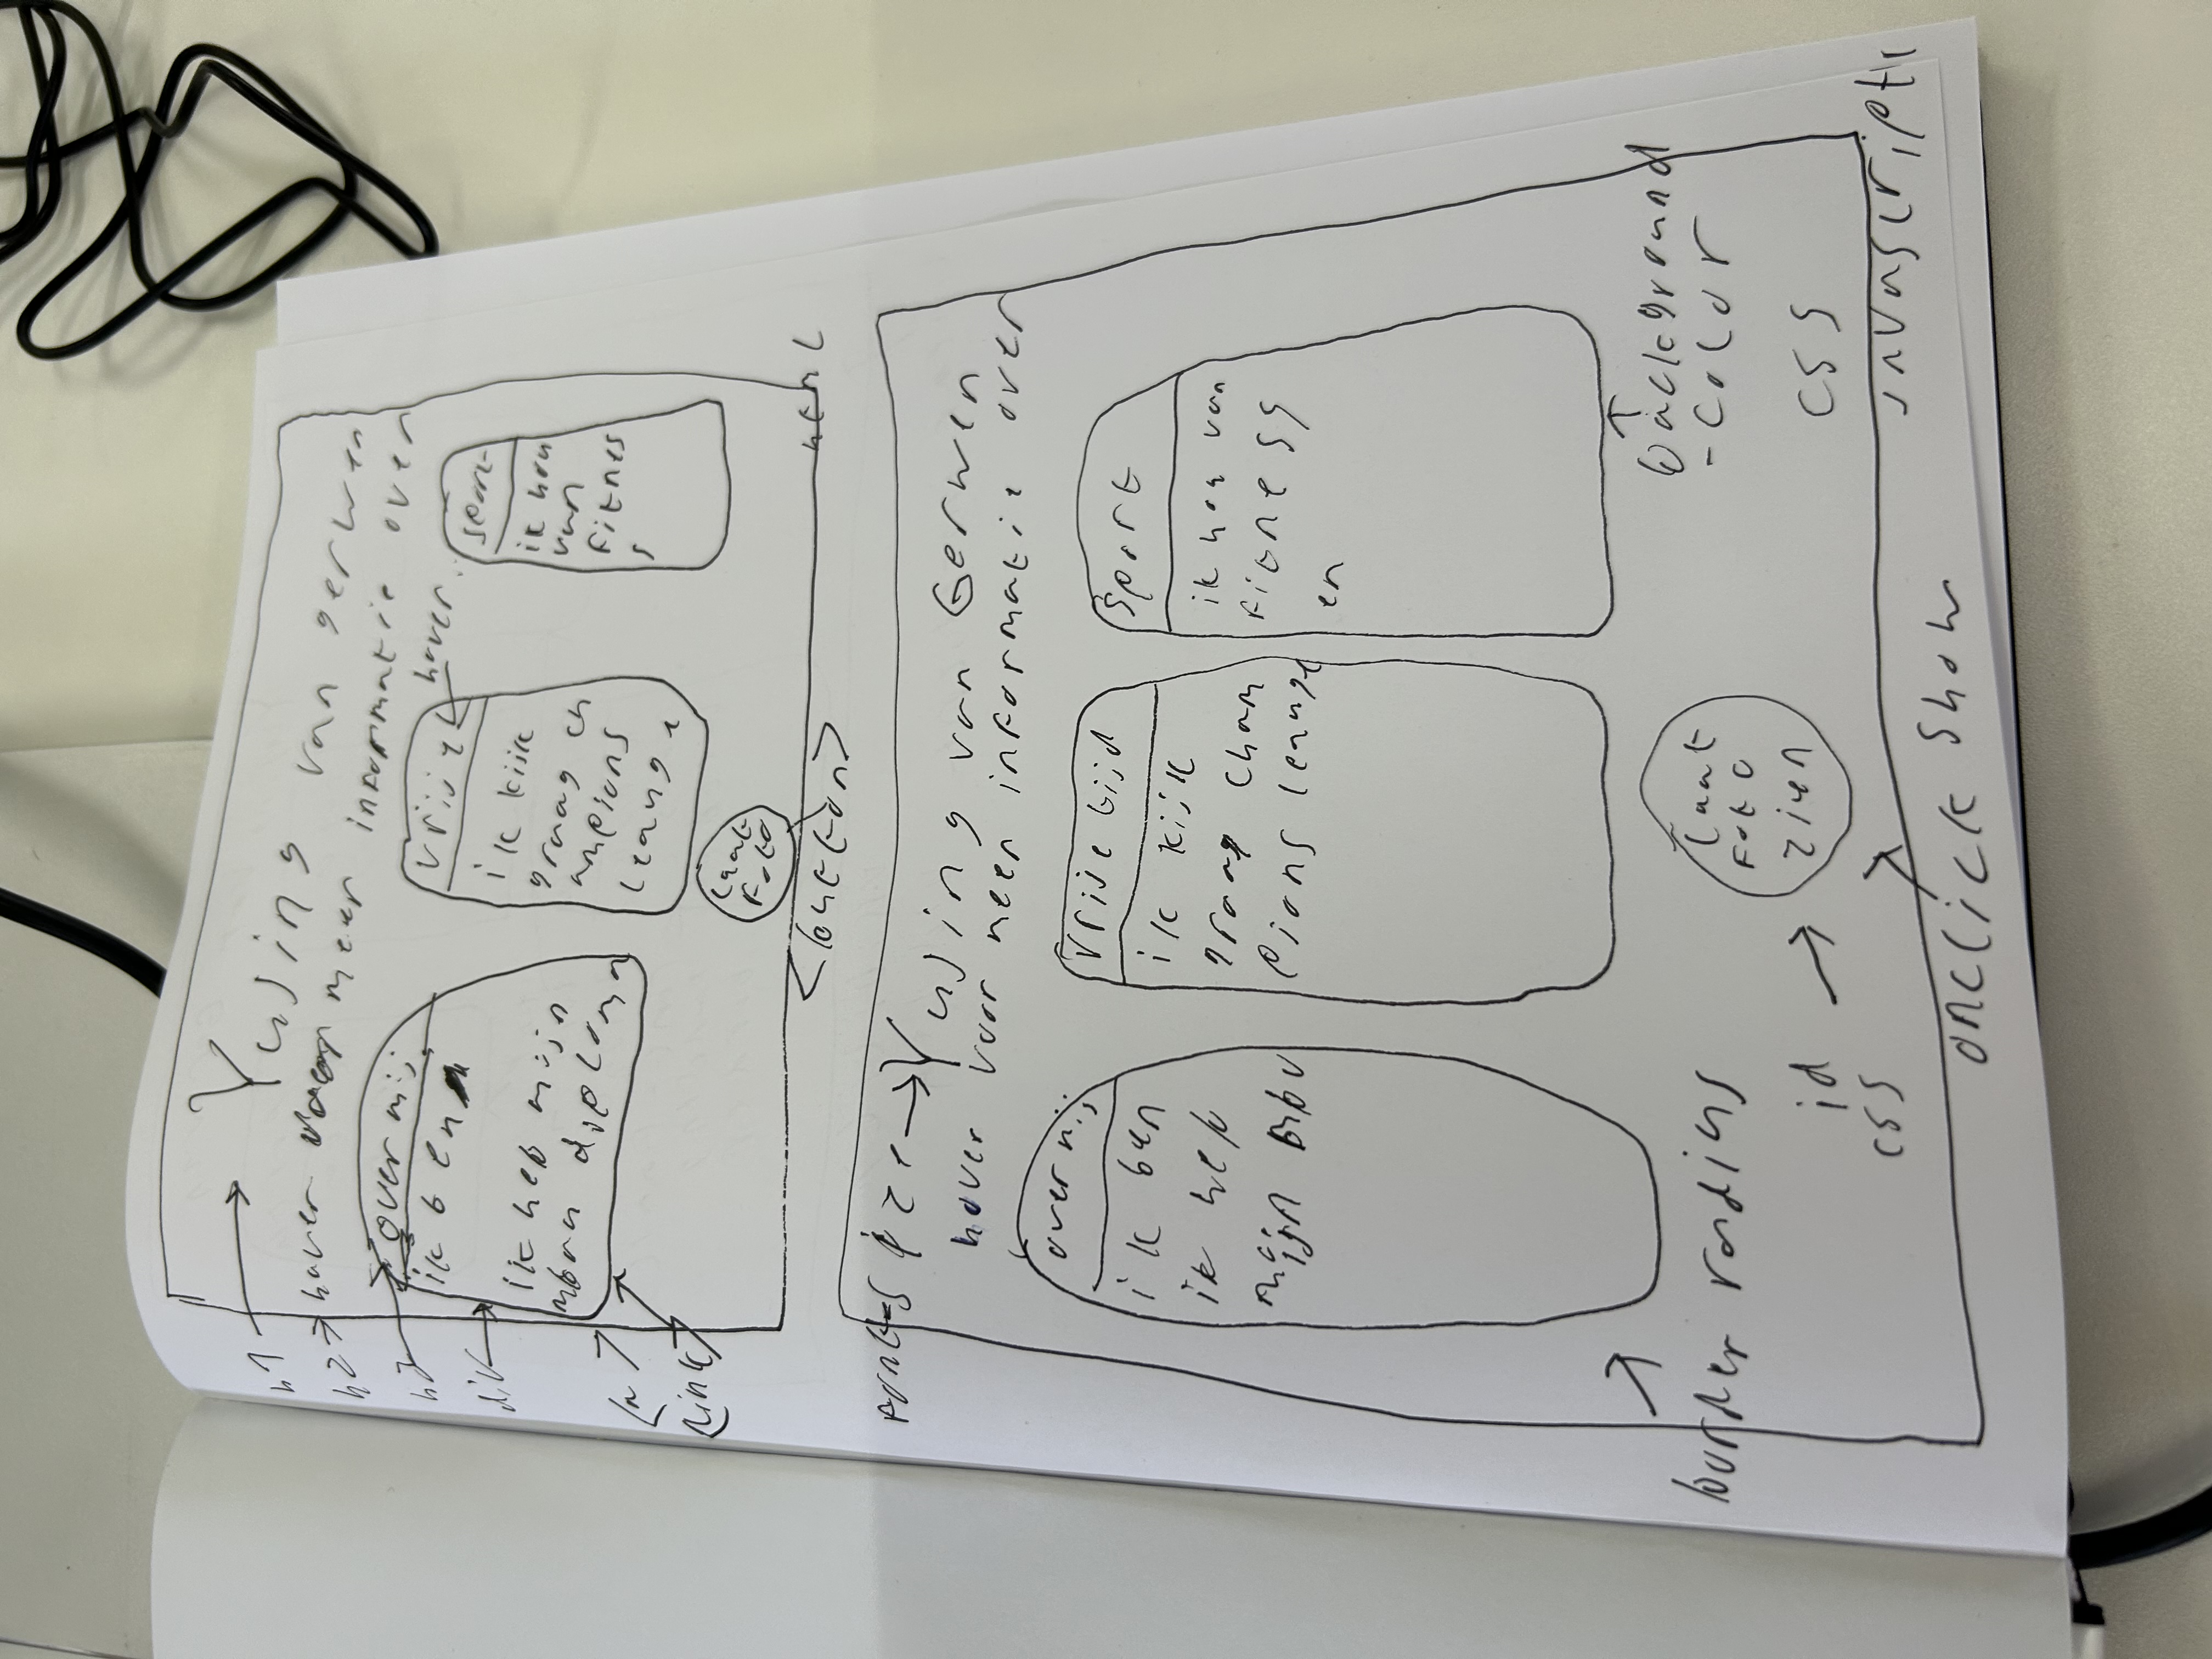 h1 → Yusing van gerwen
h2 → hover voor meer informatie over
h3 → over mij
ik ben
div →
ik heb mijn
mbau diploma
<a>
<link>
vrije
hover
ik kijk
graag ch
ampions
leauge
sport
ik hou
van
fitnes
s
Laat
Foto
<button>
html
font-size → Yusing van Gerwen
hover voor meer informatie over
over mij
ik ben
ik heb
mijn mbo
vrije tijd
ik kijk
graag cham
pions leauge
sport
ik hou van
fitness
en
border radius
background
-color
Laat
Foto
zien
id
css
css
javascript
onclick show